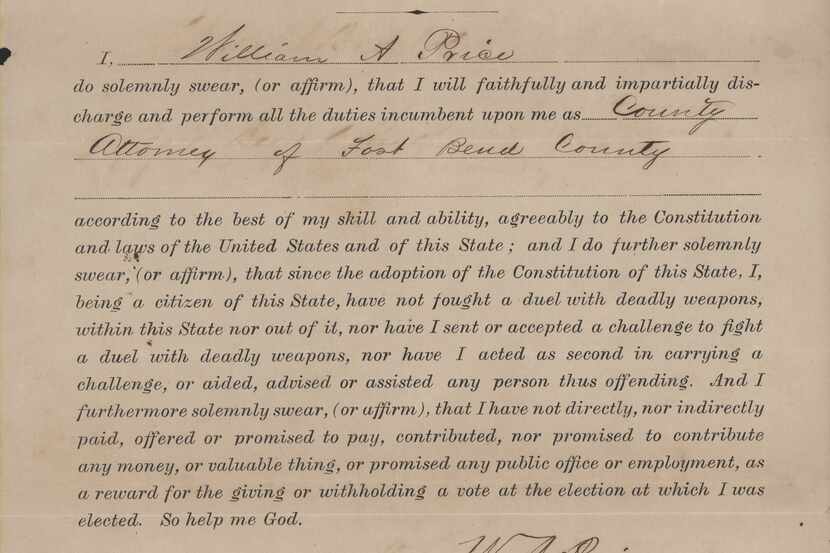 I, William A Price
do solemnly swear, (or affirm), that I will faithfully and impartially dis-
charge and perform all the duties incumbent upon me as County
Attorney of Fort Bend County
according to the best of my skill and ability, agreeably to the Constitution
and laws of the United States and of this State; and I do further solemnly
swear, (or affirm), that since the adoption of the Constitution of this State, I,
being a citizen of this State, have not fought a duel with deadly weapons,
within this State nor out of it, nor have I sent or accepted a challenge to fight
a duel with deadly weapons, nor have I acted as second in carrying a
challenge, or aided, advised or assisted any person thus offending. And I
furthermore solemnly swear, (or affirm), that I have not directly, nor indirectly
paid, offered or promised to pay, contributed, nor promised to contribute
any money, or valuable thing, or promised any public office or employment, as
a reward for the giving or withholding a vote at the election at which I was
elected. So help me God.